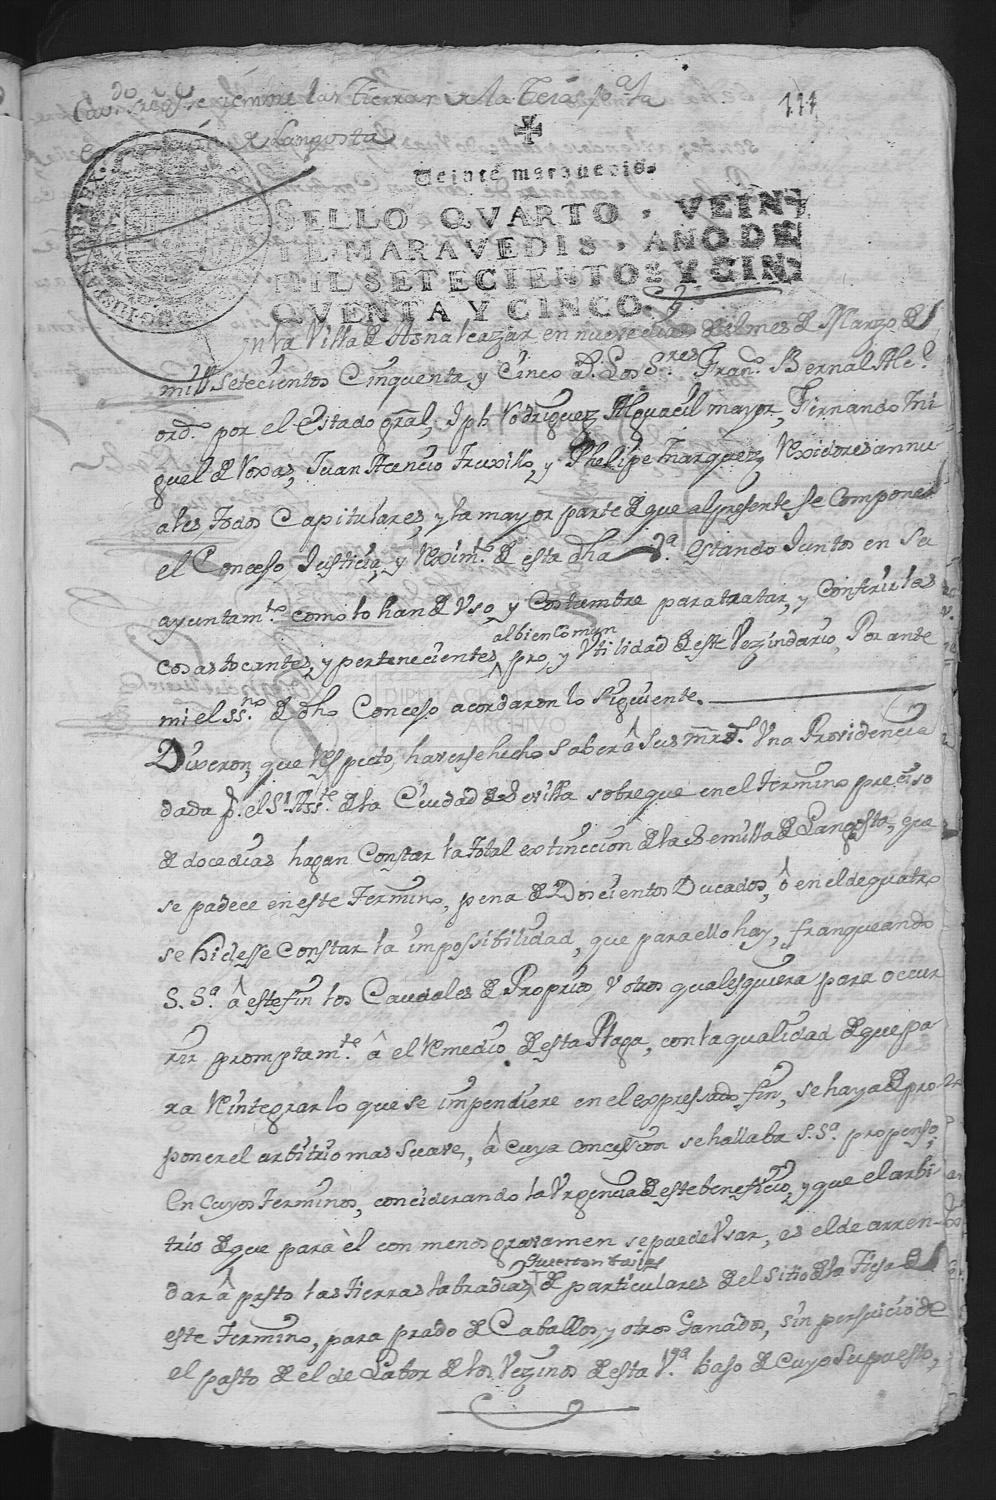 111
Langosta
Veinte maravedis.
SELLO QVARTO, VEIN-
TE MARAVEDIS, AÑO DE
MIL SETECIENTOS Y CIN-
QVENTA Y CINCO.
En la Villa de Asnalcazar en nueve dias del mes de Marzo de
mill setecientos Cinquenta y Cinco a.s Los S.res Fran.co Bernal Alc.e
ord.o por el Estado gral, Jph Rodriguez Alguacil mayor, Fernando Mi
guel de Roxas, Juan Acencio Truxillo, y Phelipe Marquez, Rexidores annu
ales, todos Capitulares, y la mayor parte de que al presente se compone
el Concejo Justicia, y Reximto de esta dha V.a estando Juntos en su
ayuntam.to como lo han de Uso, y Costumbre para tratar, y Conferir las
al bien Comun
cosas tocantes, y pertenecientes, pro, y Utilidad de este Vezindario, Por ante
mi el ss.no de dho Concejo acordaron lo siguiente.
Dixeron, que respecto, haverse hecho saber â Sus mrds. Una Providencia
dada p.r el S.r Ass.te de la Ciudad de Sevilla sobre que en el termino preciso
de doce dias hagan Constar la total extinccion de la Semilla de Langosta, que
se padece en este Termino, pena de Doscientos Ducados, ô en el de quatro
se hiciesse Constar la impossibilidad, que para ello hay, franqueando
S. S.a â este fin los Caudales de Proprios, U otros qualesquiera para occur
rir promptam.te â el remedio de esta Plaga, con la qualidad de que pa-
ra reintegrar lo que se impendiere en el expressado fin, se haya de pro-
poner el arbitrio mas suave, â cuya concession se hallaba S. S.a propenso,
En cuyos terminos, conciderando la Urgencia de este beneficio, y que el arbi-
trio de que para èl con menos gravamen se puede Usar, es el de arren-
dar â pasto las tierras labradias, de particulares del sitio de la Texa de
este termino, para prado de Caballos, y otros Ganados, sin perjuicio de
el pasto de el de Labor de los Vezinos de esta V.a bajo de cuyo supuesto,
DIPUTACIÓN DE SEVILLA
ARCHIVO